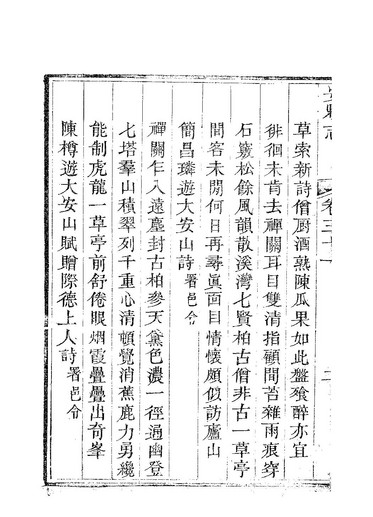 安縣志
卷三十一
草索新詩僧厨酒熟陳瓜果如此盤飱醉亦宜
徘徊未肯去禪關耳目雙清指顧間苔雜雨痕穿
石竅松餘風韻散溪灣七賢柏古僧非古一草亭
間客未閒何日再尋眞面目情懷頗似訪廬山
簡昌璘遊大安山詩署邑令
禪關乍入遠塵封古柏參天黛色濃一徑過幽登
七塔羣山積翠列千重心清頓覺消蕉鹿力勇纔
能制虎龍一草亭前舒倦眼烟霞疊疊出奇峯
陳樽遊大安山賦贈際德上人詩署邑令